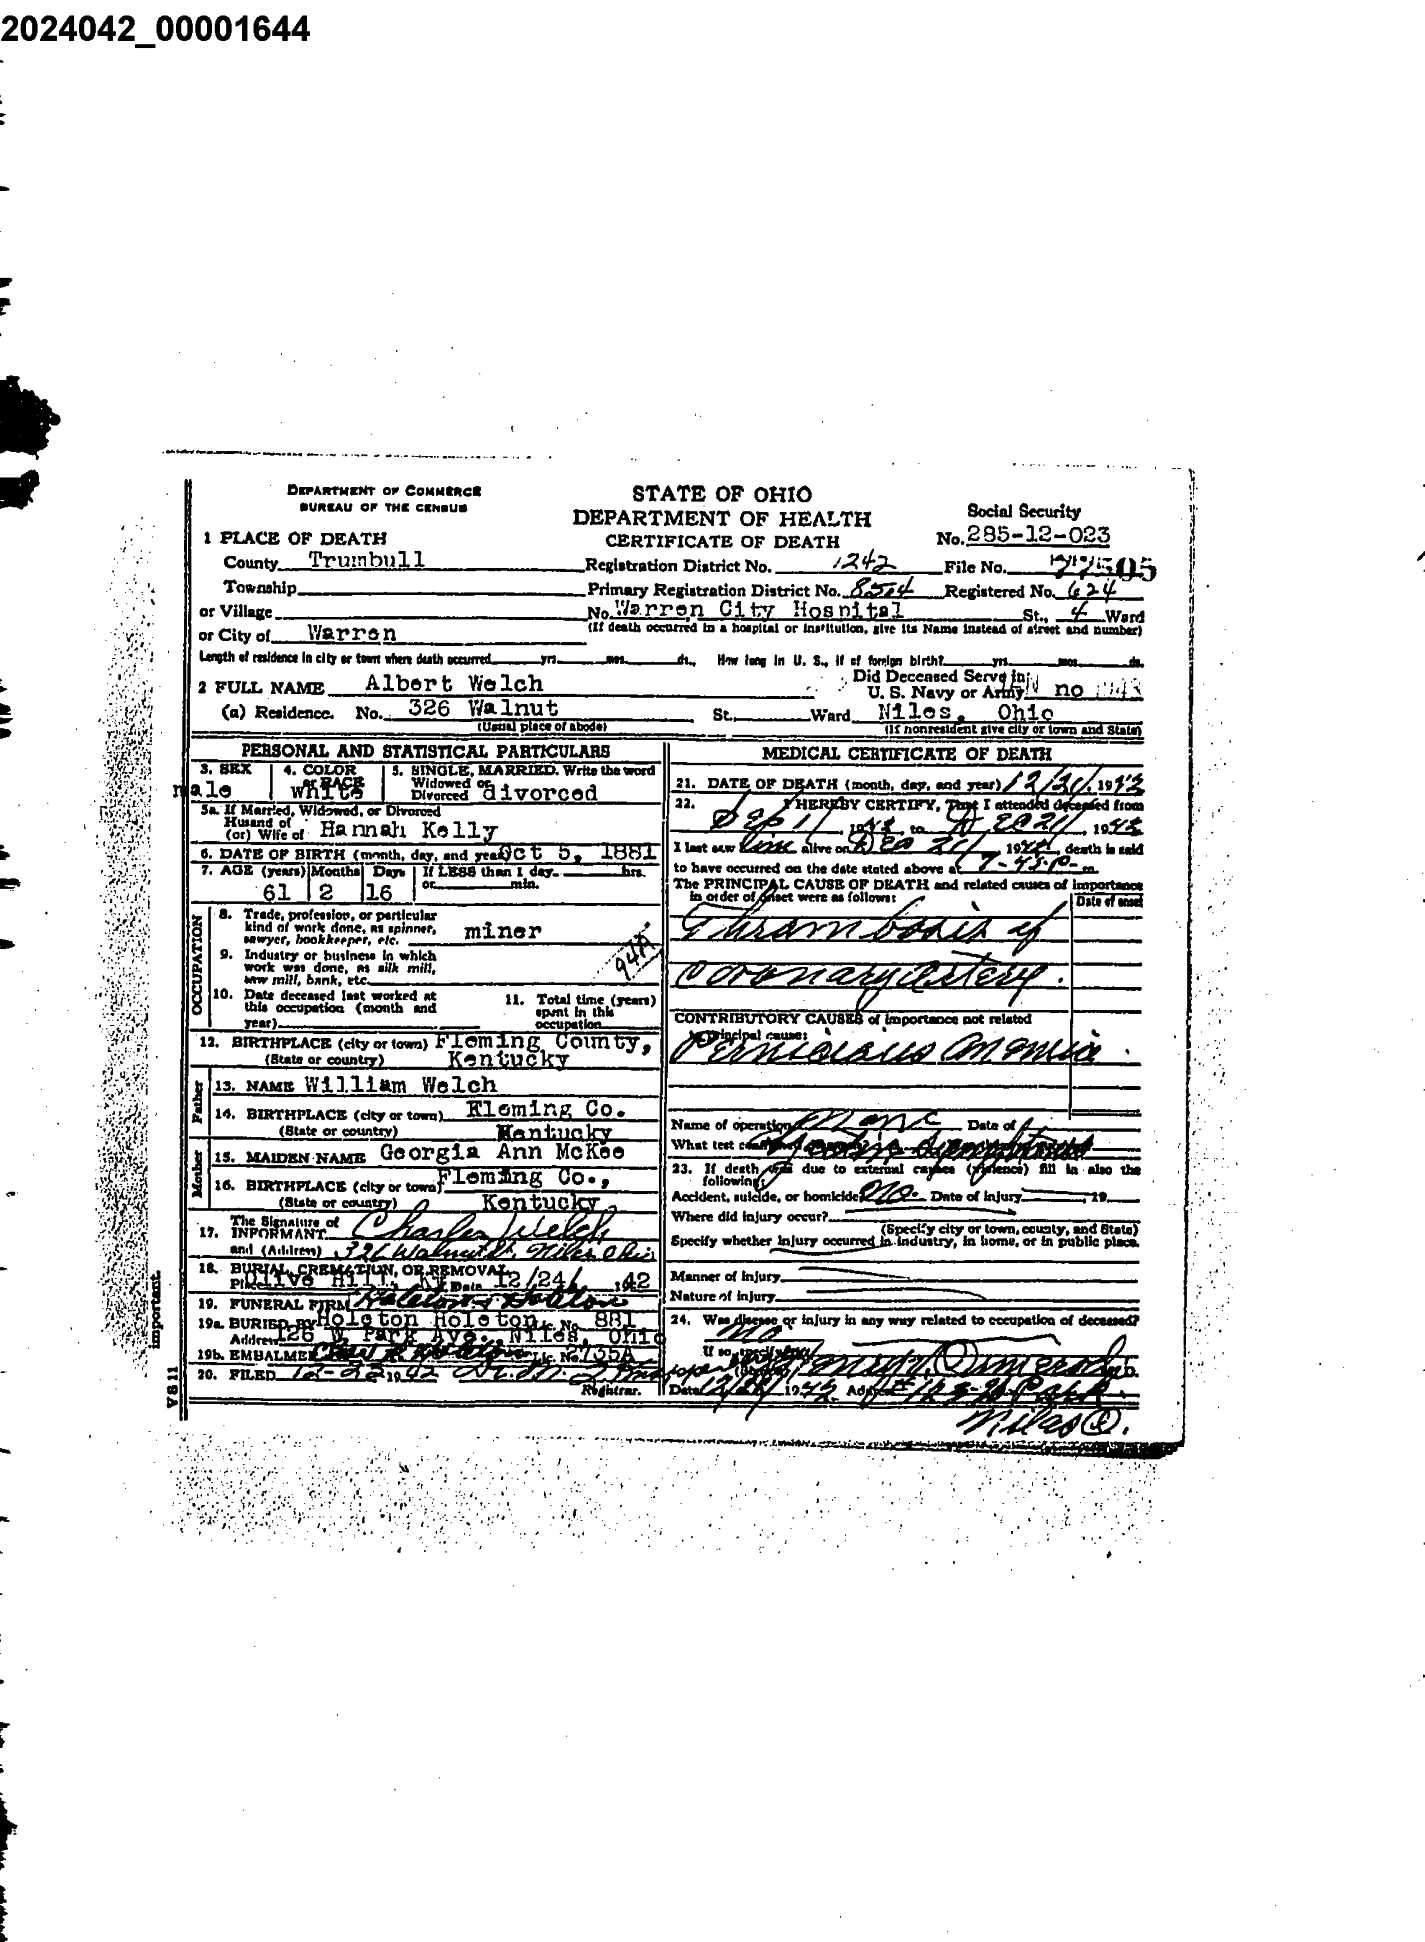 2024042_00001644
DEPARTMENT OF COMMERCE
BUREAU OF THE CENSUS
STATE OF OHIO
DEPARTMENT OF HEALTH
CERTIFICATE OF DEATH
Social Security
No. 285-12-023
1 PLACE OF DEATH
County Trumbull Registration District No. 1242 File No.
Township Primary Registration District No. 8504 Registered No. 624
or Village No. Warren City Hospital St., 4 Ward
or City of Warren (If death occurred in a hospital or institution, give its Name instead of street and number)
Length of residence in city or town where death occurred yrs. mos. ds. How long in U. S., if of foreign birth? yrs. mos. ds.
2 FULL NAME Albert Welch Did Deceased Serve in U. S. Navy or Army no
(a) Residence. No. 326 Walnut St., Ward Niles, Ohio
(Usual place of abode) (If nonresident give city or town and State)
PERSONAL AND STATISTICAL PARTICULARS
3. SEX male 4. COLOR or RACE white 5. SINGLE, MARRIED. Write the word Widowed or Divorced divorced
5a. If Married, Widowed, or Divorced
Husand of
(or) Wife of Hannah Kelly
6. DATE OF BIRTH (month, day, and year) Oct 5, 1881
7. AGE (years) Months Days If LESS than 1 day. hrs.
61 2 16 or min.
OCCUPATION
8. Trade, profession, or particular
kind of work done, as spinner, miner
sawyer, bookkeeper, etc.
9. Industry or business in which
work was done, as silk mill, 94A
saw mill, bank, etc.
10. Date deceased last worked at
this occupation (month and
year)
11. Total time (years)
spent in this
occupation
12. BIRTHPLACE (city or town) Fleming County,
(State or country) Kentucky
Father
13. NAME William Welch
14. BIRTHPLACE (city or town) Fleming Co.
(State or country) Kentucky
Mother
15. MAIDEN NAME Georgia Ann McKee
16. BIRTHPLACE (city or town) Fleming Co.,
(State or country) Kentucky
17. The Signature of
INFORMANT Charles Welch
and (Address) 326 Walnut St. Niles Ohio
18. BURIAL, CREMATION, OR REMOVAL
Place Olive Hill, Ky. Date 12/24/ 1942
19. FUNERAL FIRM Holeton & Holeton
19a. BURIED BY Holeton Holeton Lic. No. 881
Address 126 W. Park Ave., Niles, Ohio
19b. EMBALMER Lic. No. 2735A
20. FILED 12-22 1942
Registrar.
MEDICAL CERTIFICATE OF DEATH
21. DATE OF DEATH (month, day, and year) 12/21/ 1942
22. I HEREBY CERTIFY, That I attended deceased from
Sep 1/ 1942 to Dec 21/, 1942
I last saw him alive on Dec 21/, 1942, death is said
to have occurred on the date stated above at 7-45-P-m.
The PRINCIPAL CAUSE OF DEATH and related causes of importance
in order of onset were as follows: Date of onset
Thrombosis of
Coronary Artery.
CONTRIBUTORY CAUSES of importance not related
to principal cause:
Pernicious Anemia.
Name of operation None Date of
What test confirmed
23. If death was due to external causes (violence) fill in also the
following:
Accident, suicide, or homicide? No. Date of injury 19
Where did injury occur?
(Specify city or town, county, and State)
Specify whether injury occurred in industry, in home, or in public place.
Manner of injury
Nature of injury
24. Was disease or injury in any way related to occupation of deceased?
No
If so, specify
(Signed) M.D.
Date 12/21/ 1942. Address
Niles O.
important.
VS 11